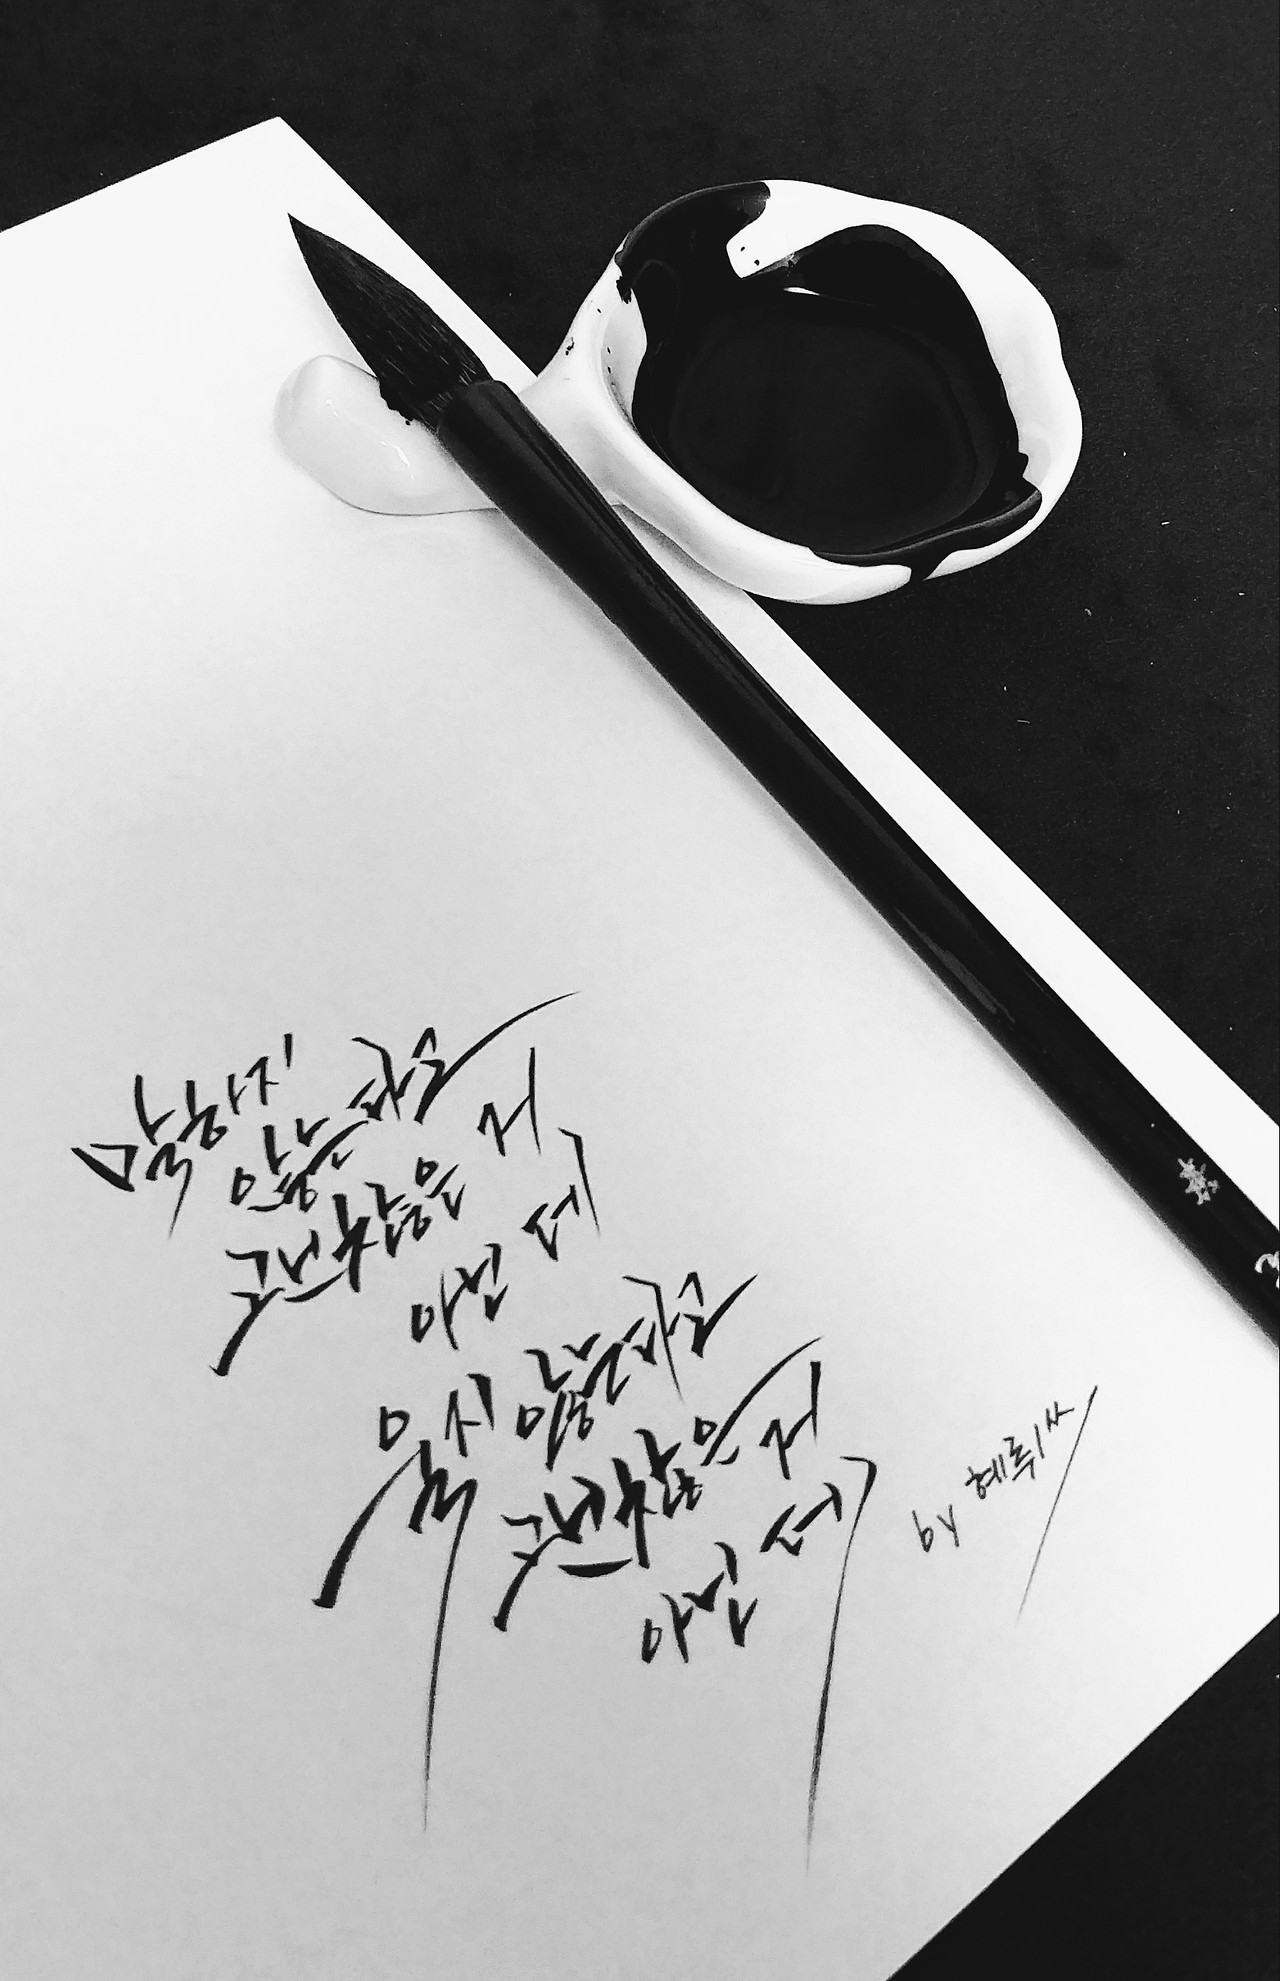 말하지
않는다고
괜찮은 거
아닌데
울지 않는다고
괜찮은 거
아닌데
by